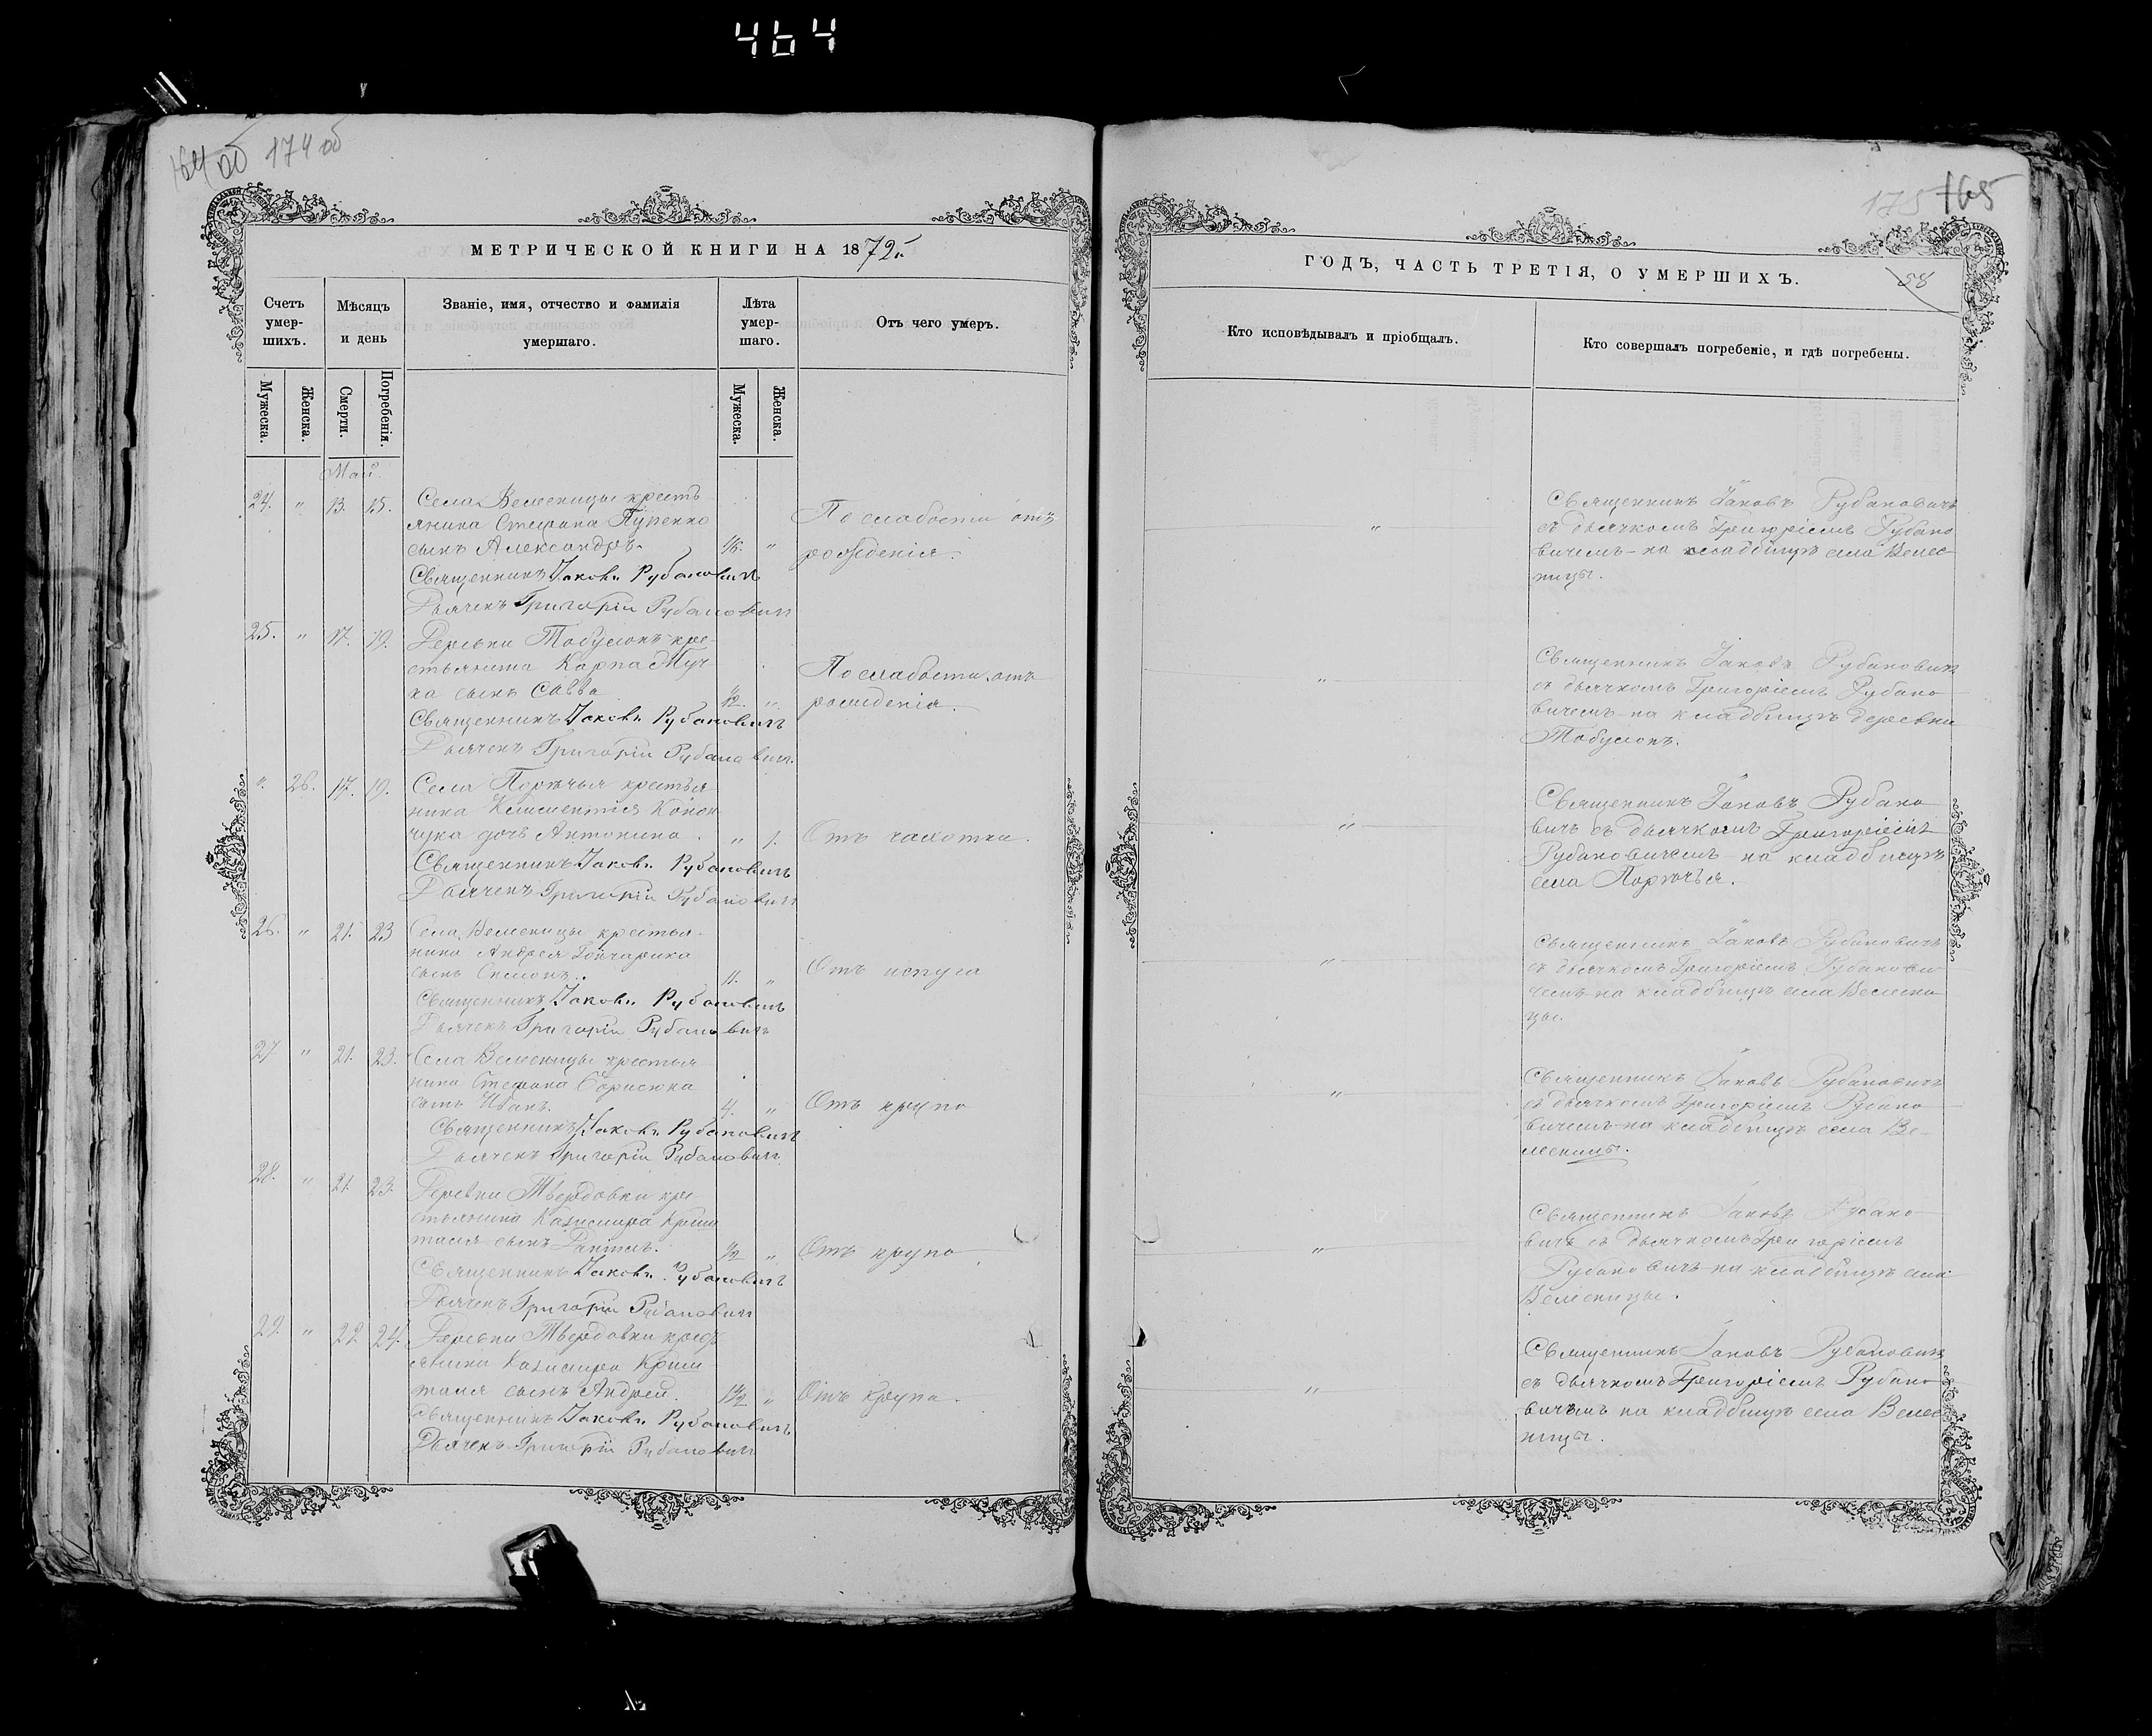 464
164 об 174 об
МЕТРИЧЕСКОЙ КНИГИ НА 1872 г.
Счетъ умер-шихъ.
Мѣсяцъ и день
Званіе, имя, отчество и фамилія умершаго.
Лѣта умер-шаго.
Отъ чего умеръ.
Мужеска.
Женска.
Смерти.
Погребенія.
Мужеска.
Женска.
Май.
24. " 13. 15. Села Велесницы кресть
янина Стефана
сынъ Александръ. 1/6. "
По слабости отъ
рожденія.
Священникъ Іаковъ Рубановичъ
Дьячекъ Григорій Рубановичъ
25. " 17. 19. Деревни Табулокъ кре-
стьянина Карпа Муч
ка сынъ Савва
По слабости отъ
рожденія.
Священникъ Іаковъ Рубановичъ
Дьячекъ Григорій Рубановичъ.
" 26. 17. 19. Села Порѣчья крестья
нина Климентія Конон
чука дочь Антонина. " 1. Отъ чахотки.
Священникъ Іаковъ Рубановичъ
Дьячекъ Григорій Рубановичъ
26. " 21. 23 Села Велесницы крестья-
нина Андрея Гончарика
сынъ Симонъ. 11. " Отъ испуга
Священникъ Іаковъ Рубановичъ
Дьячекъ Григорій Рубановичъ
27 " 21. 23. Села Велесницы крестья
нина Стефана Борисюка
сынъ Иванъ. 4. " Отъ крупа
Священникъ Іаковъ Рубановичъ
Дьячекъ Григорій Рубановичъ.
28. " 21. 23. Деревни Твердовки кре
стьянина Казимира
сынъ 1/2 " Отъ крупа
Священникъ Іаковъ Рубановичъ
Дьячекъ Григорій Рубановичъ
29. " 22 24. Деревни Твердовки крест
янина Казимира
сынъ Андрей. 1 1/2 " Отъ крупа.
Священникъ Іаковъ Рубановичъ
Дьячекъ Григорій Рубановичъ
175 165
ГОДЪ, ЧАСТЬ ТРЕТІЯ, О УМЕРШИХЪ.
58
Кто исповѣдывалъ и пріобщалъ.
Кто совершалъ погребеніе, и гдѣ погребены.
Священникъ Іаковъ Рубановичъ
съ дьячкомъ Григоріемъ Рубано
вичемъ на кладбищѣ села Велес-
ницы.
Священникъ Іаковъ Рубановичъ
съ дьячкомъ Григоріемъ Рубано
вичемъ на кладбищѣ деревни
Табулокъ.
Священникъ Іаковъ Рубано
вичъ съ дьячкомъ Григоріемъ
Рубановичемъ на кладбищѣ
села Порѣчья.
Священникъ Іаковъ Рубановичъ
съ дьячкомъ Григоріемъ Рубанови
чемъ на кладбищѣ села Велесни
цы.
Священникъ Іаковъ Рубановичъ
съ дьячкомъ Григоріемъ Рубано
вичемъ на кладбищѣ села Ве-
лесницы.
Священникъ Іаковъ Рубано
вичъ съ дьячкомъ Григоріемъ
Рубановичъ на кладбищѣ села
Велесницы.
Священникъ Іаковъ Рубановичъ
съ дьячкомъ Григоріемъ Рубано
вичемъ на кладбищѣ села Велес
ницы.